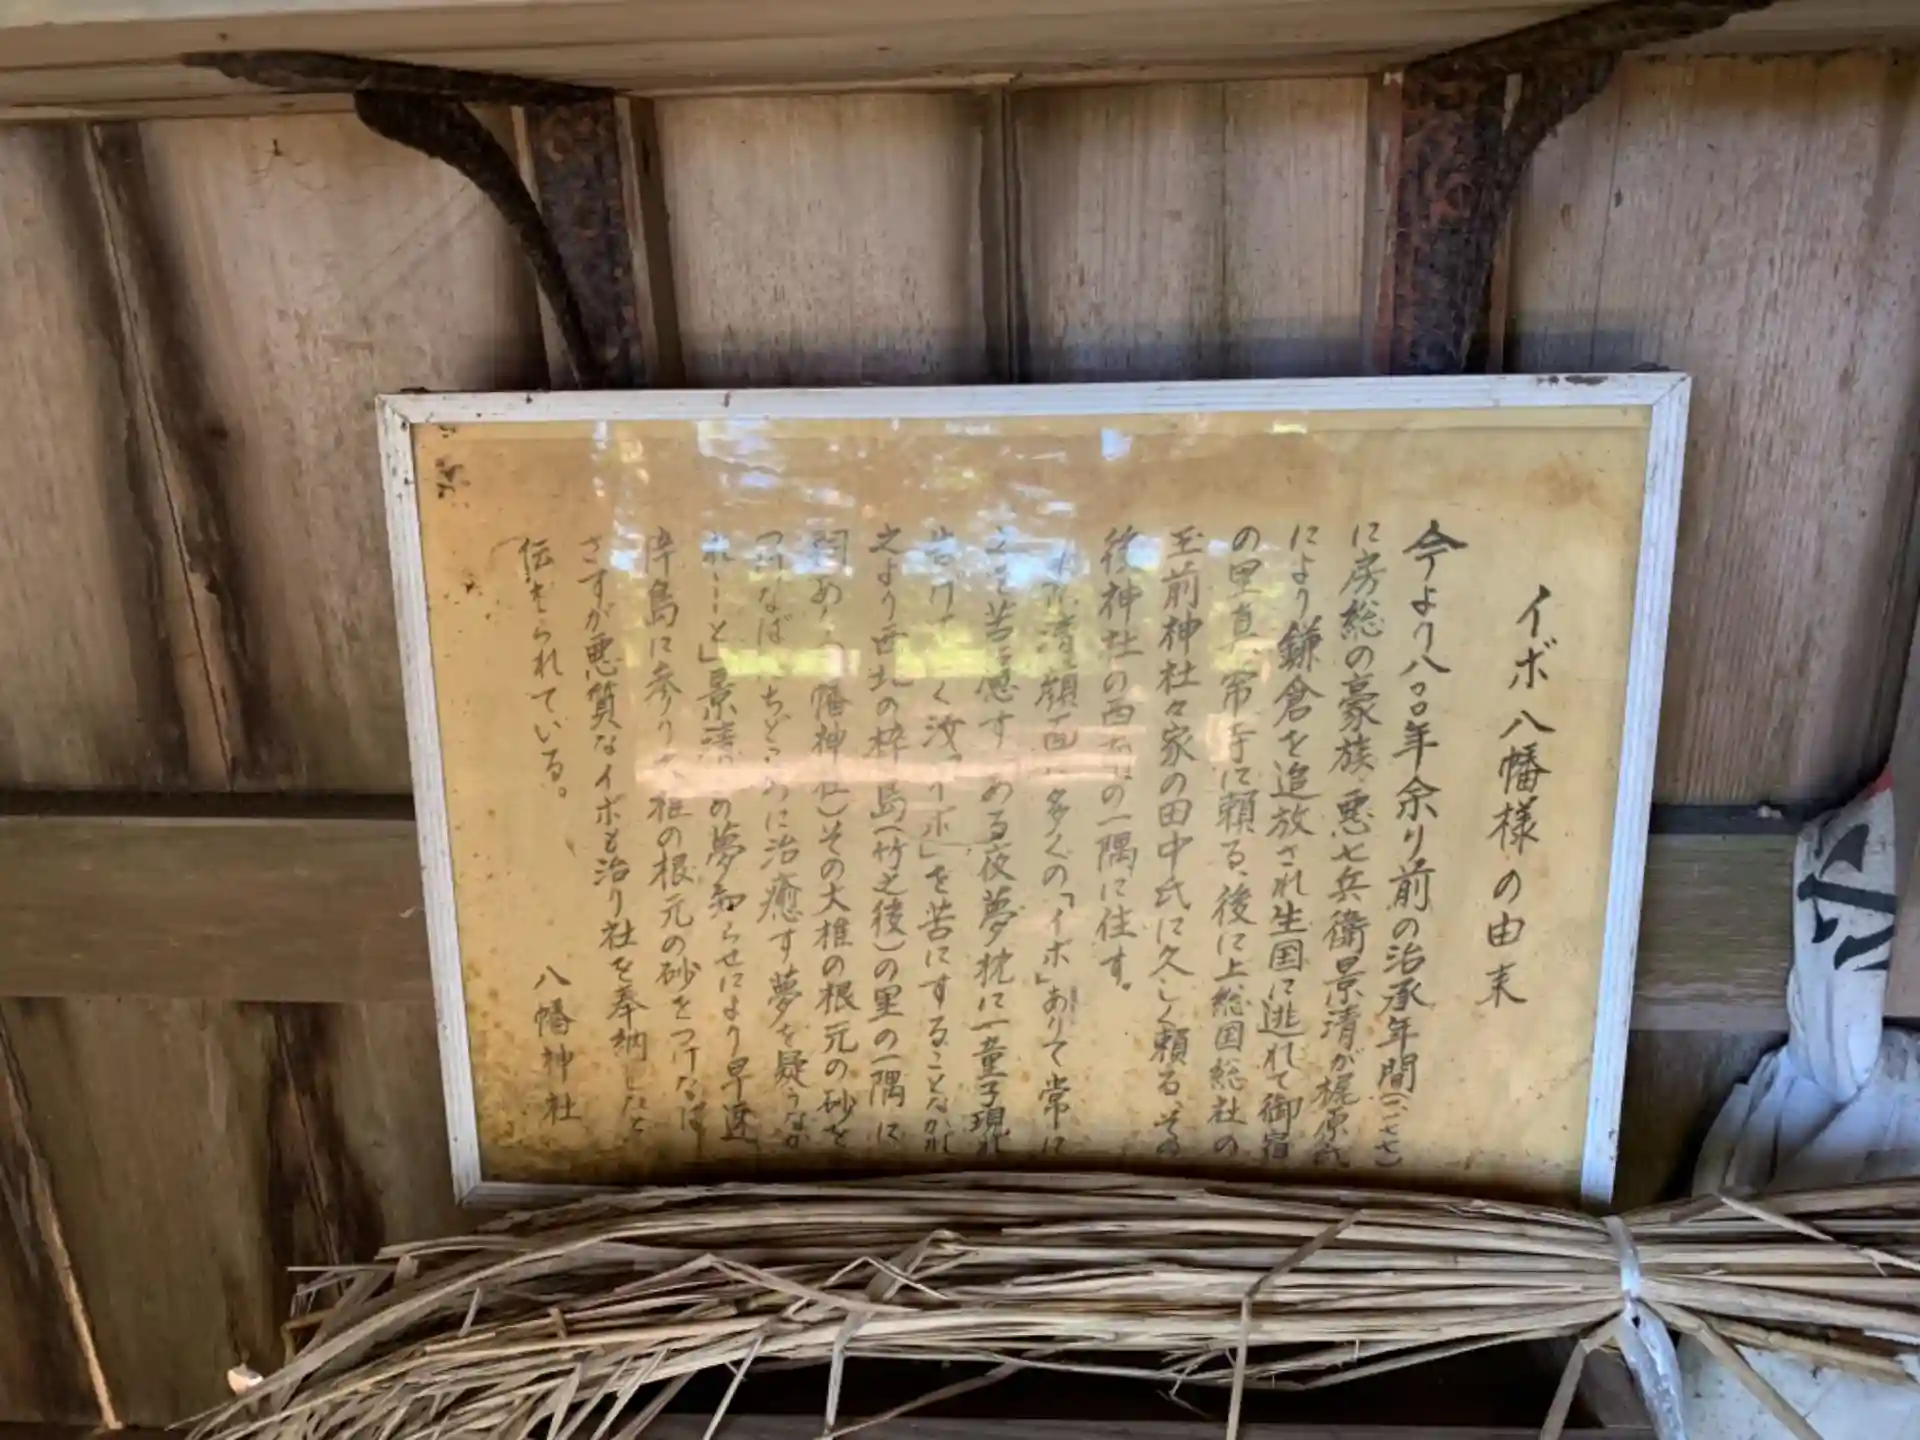 イボ八幡様の由来
今より八〇〇年余り前の治承年間(一一七七)
に房総の豪族・悪七兵衛景清が梶原氏
により鎌倉を追放され生国に逃れて御宿
の里真常寺に頼る、後に上総国総社の
玉前神社々家の田中氏に久しく頼る、その
後神社の西なはの一隅に住す。
景清顔面、多くの「イボ」ありて常に
之を苦に感ず ある夜夢枕に一童子現れ
告げて 汝「イボ」を苦にすることなかれ
之より西北の枠島(竹之後)の里の一隅に
祠あり 幡神社)その大椎の根元の砂を
つけなば たちどころに治癒す夢を疑うなか
れ――と」景清 の夢知らせにより早速
枠島に参り大椎の根元の砂をつけなば
さすが悪質なイボも治り社を奉納したと
伝えられている。
八幡神社